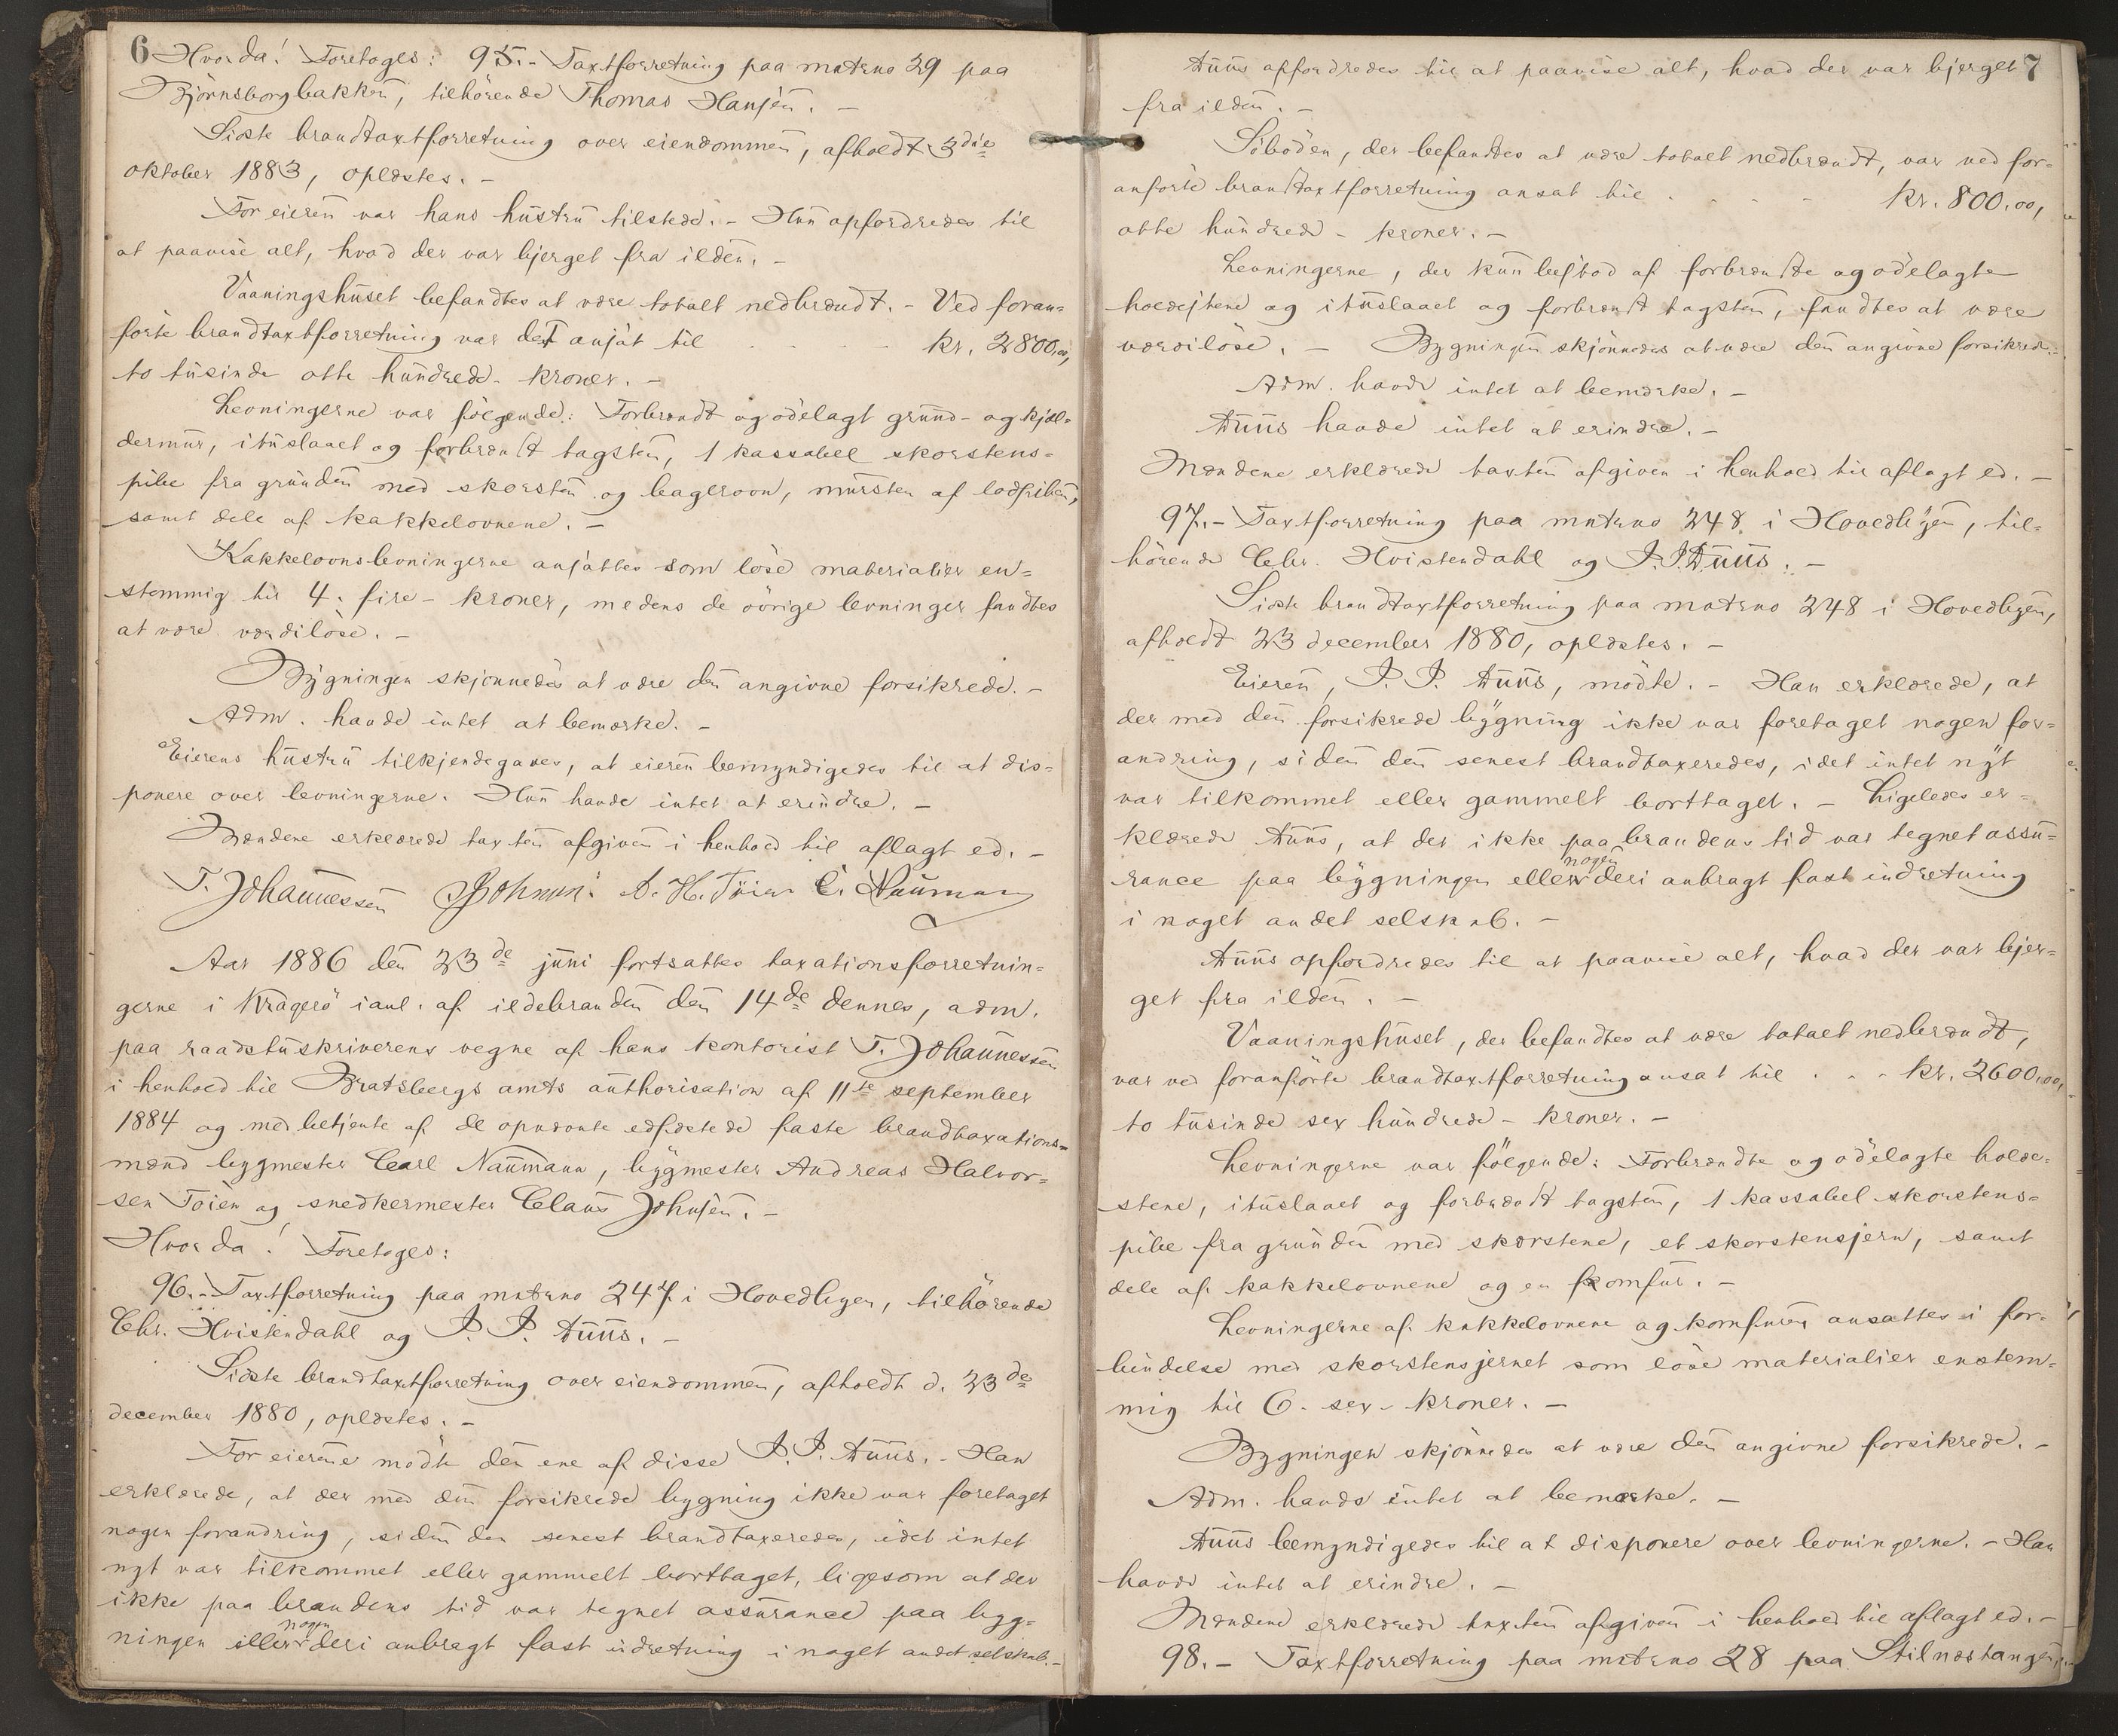 6 Hvorda! Foretoges: 95.- Taxtforretning paa matrno 29 paa
Björnsborgbakken, tilhörende Thomas Hansen. -
Sidste brandtaxtforretning over eiendommen, afholdt 3die
oktober 1883, oplæstes. -
For eieren var hans hustru tilstede. - Hun opfordredes til
at paavise alt, hvad der var bjerget fra ilden. -
Vaaningshuset befandtes at være totalt nedbrændt. - Ved foran-
förte brandtaxtforretning var det ansat til . . . . kr. 2800,00,
to tusinde otte hundrede - kroner. -
Levningerne var følgende: Forbrændt og ödelagt grund- og kjæl-
dermur, ituslaaet og forbrændt tagsten, 1 kassabel skorstens-
pibe fra grunden med skorsten og bagerovn, mursten af lodpiben,
samt dele af kakkelovnene. -
Kakkelovnslevningerne ansattes som löse materialier en-
stemmig til 4. fire - kroner, medens de övrige levninger fandtes
at være værdilöse. -
Bygningen skjönnedes at være den angivne forsikrede. -
Adm. havde intet at bemærke. -
Eierens hustru tilkjendegaves, at eieren bemyndigedes til at dis-
ponere over levningerne. Hun havde intet at erindre. -
Mændene erklærede taxten afgiven i henhold til aflagt ed. -
T. Johannessen CJohnsen. A. H. Töien C. Naumann
Aar 1886 den 23de juni fortsattes taxationsforretnin-
gerne i Kragerö i anl. af ildebranden den 14de dennes, adm.
paa raadstuskriverens vegne af hans kontorist T. Johannessen
i henhold til Bratsbergs amts authorisation af 11te september
1884 og med betjente af de opnævnte edfæstede faste brandtaxations-
mænd bygmester Carl Naumann, bygmester Andreas Halvor-
sen Töien og snedkermester Claus Johnsen. -
Hvorda! Foretoges:
96. - Taxtforretning paa matrno 247 i Hovedbyen, tilhörende
Chr. Hvistendahl og P. P. Auus. -
Sidste brandtaxtforretning over eiendommen, afholdt d. 23de
december 1880, oplæstes. -
For eierene mödte den ene af disse P. P. Auus. - Han
erklærede, at der med den forsikrede bygning ikke var foretaget
nogen forandring, siden den senest brandtaxeredes, idet intet
nyt var tilkommet eller gammelt borttaget, ligesom at der
ikke paa brandens tid var tegnet assurance paa byg-
nogen
ningen eller deri anbragt fast indretning i noget andet selskab. -
Auus opfordredes til at paavise alt, hvad der var bjerget 7
fra ilden. -
Söboden, der befandtes at være totalt nedbrændt, var ved for-
anförte brandtaxtforretning ansat til . . . . kr. 800,00,
otte hundrede - kroner. -
Levningerne, der kun bestod af forbrændte og ödelagte
holdestene og ituslaaet og forbrændt tagsten, fandtes at være
værdilöse. - Bygningen skjönnedes at være den angivne forsikrede. -
Adm. havde intet at bemærke. -
Auus havde intet at erindre. -
Mændene erklærede taxten afgiven i henhold til aflagt ed. -
97. - Taxtforretning paa matrno 248 i Hovedbyen, til-
hörende Chr. Hvistendahl og P. P. Auus. -
Sidste brandtaxtforretning paa matrno 248 i Hovedbyen,
afholdt 23 december 1880, oplæstes. -
Eieren, P. P. Auus, mödte. - Han erklærede, at
der med den forsikrede bygning ikke var foretaget nogen for-
andring, siden den senest brandtaxeredes, idet intet nyt
var tilkommet eller gammelt borttaget. - Ligeledes er-
klærede Auus, at der ikke paa brandens tid var tegnet assu-
nogen
rance paa bygningen eller deri anbragt fast indretning
i noget andet selskab. -
Auus opfordredes til at paavise alt, hvad der var bjer-
get fra ilden. -
Vaaningshuset, der befandtes at være totalt nedbrændt,
var ved foranförte brandtaxtforretning ansat til . . . kr. 2600,00,
to tusinde sex hundrede - kroner. -
Levningerne var fölgende: Forbrændte og ödelagte holde-
stene, ituslaaet og forbrændt tagsten, 1 kassabel skorstens-
pibe fra grunden med skorstene, et skorstensjern, samt
dele af kakkelovnene og en komfur. -
Levningerne af kakkelovnene og komfuren ansattes i for-
bindelse med skorstensjernet som löse materialier enstem-
mig til 6. sex - kroner. -
Bygningen skjönnedes at være den angivne forsikrede. -
Adm. havde intet at bemærke. -
Auus bemyndigedes til at disponere over levningerne. - Han
havde intet at erindre. -
Mændene erklærede taxten afgiven i henhold til aflagt ed. -
98. - Taxtforretning paa matrno 28 paa Stilnæstangen,